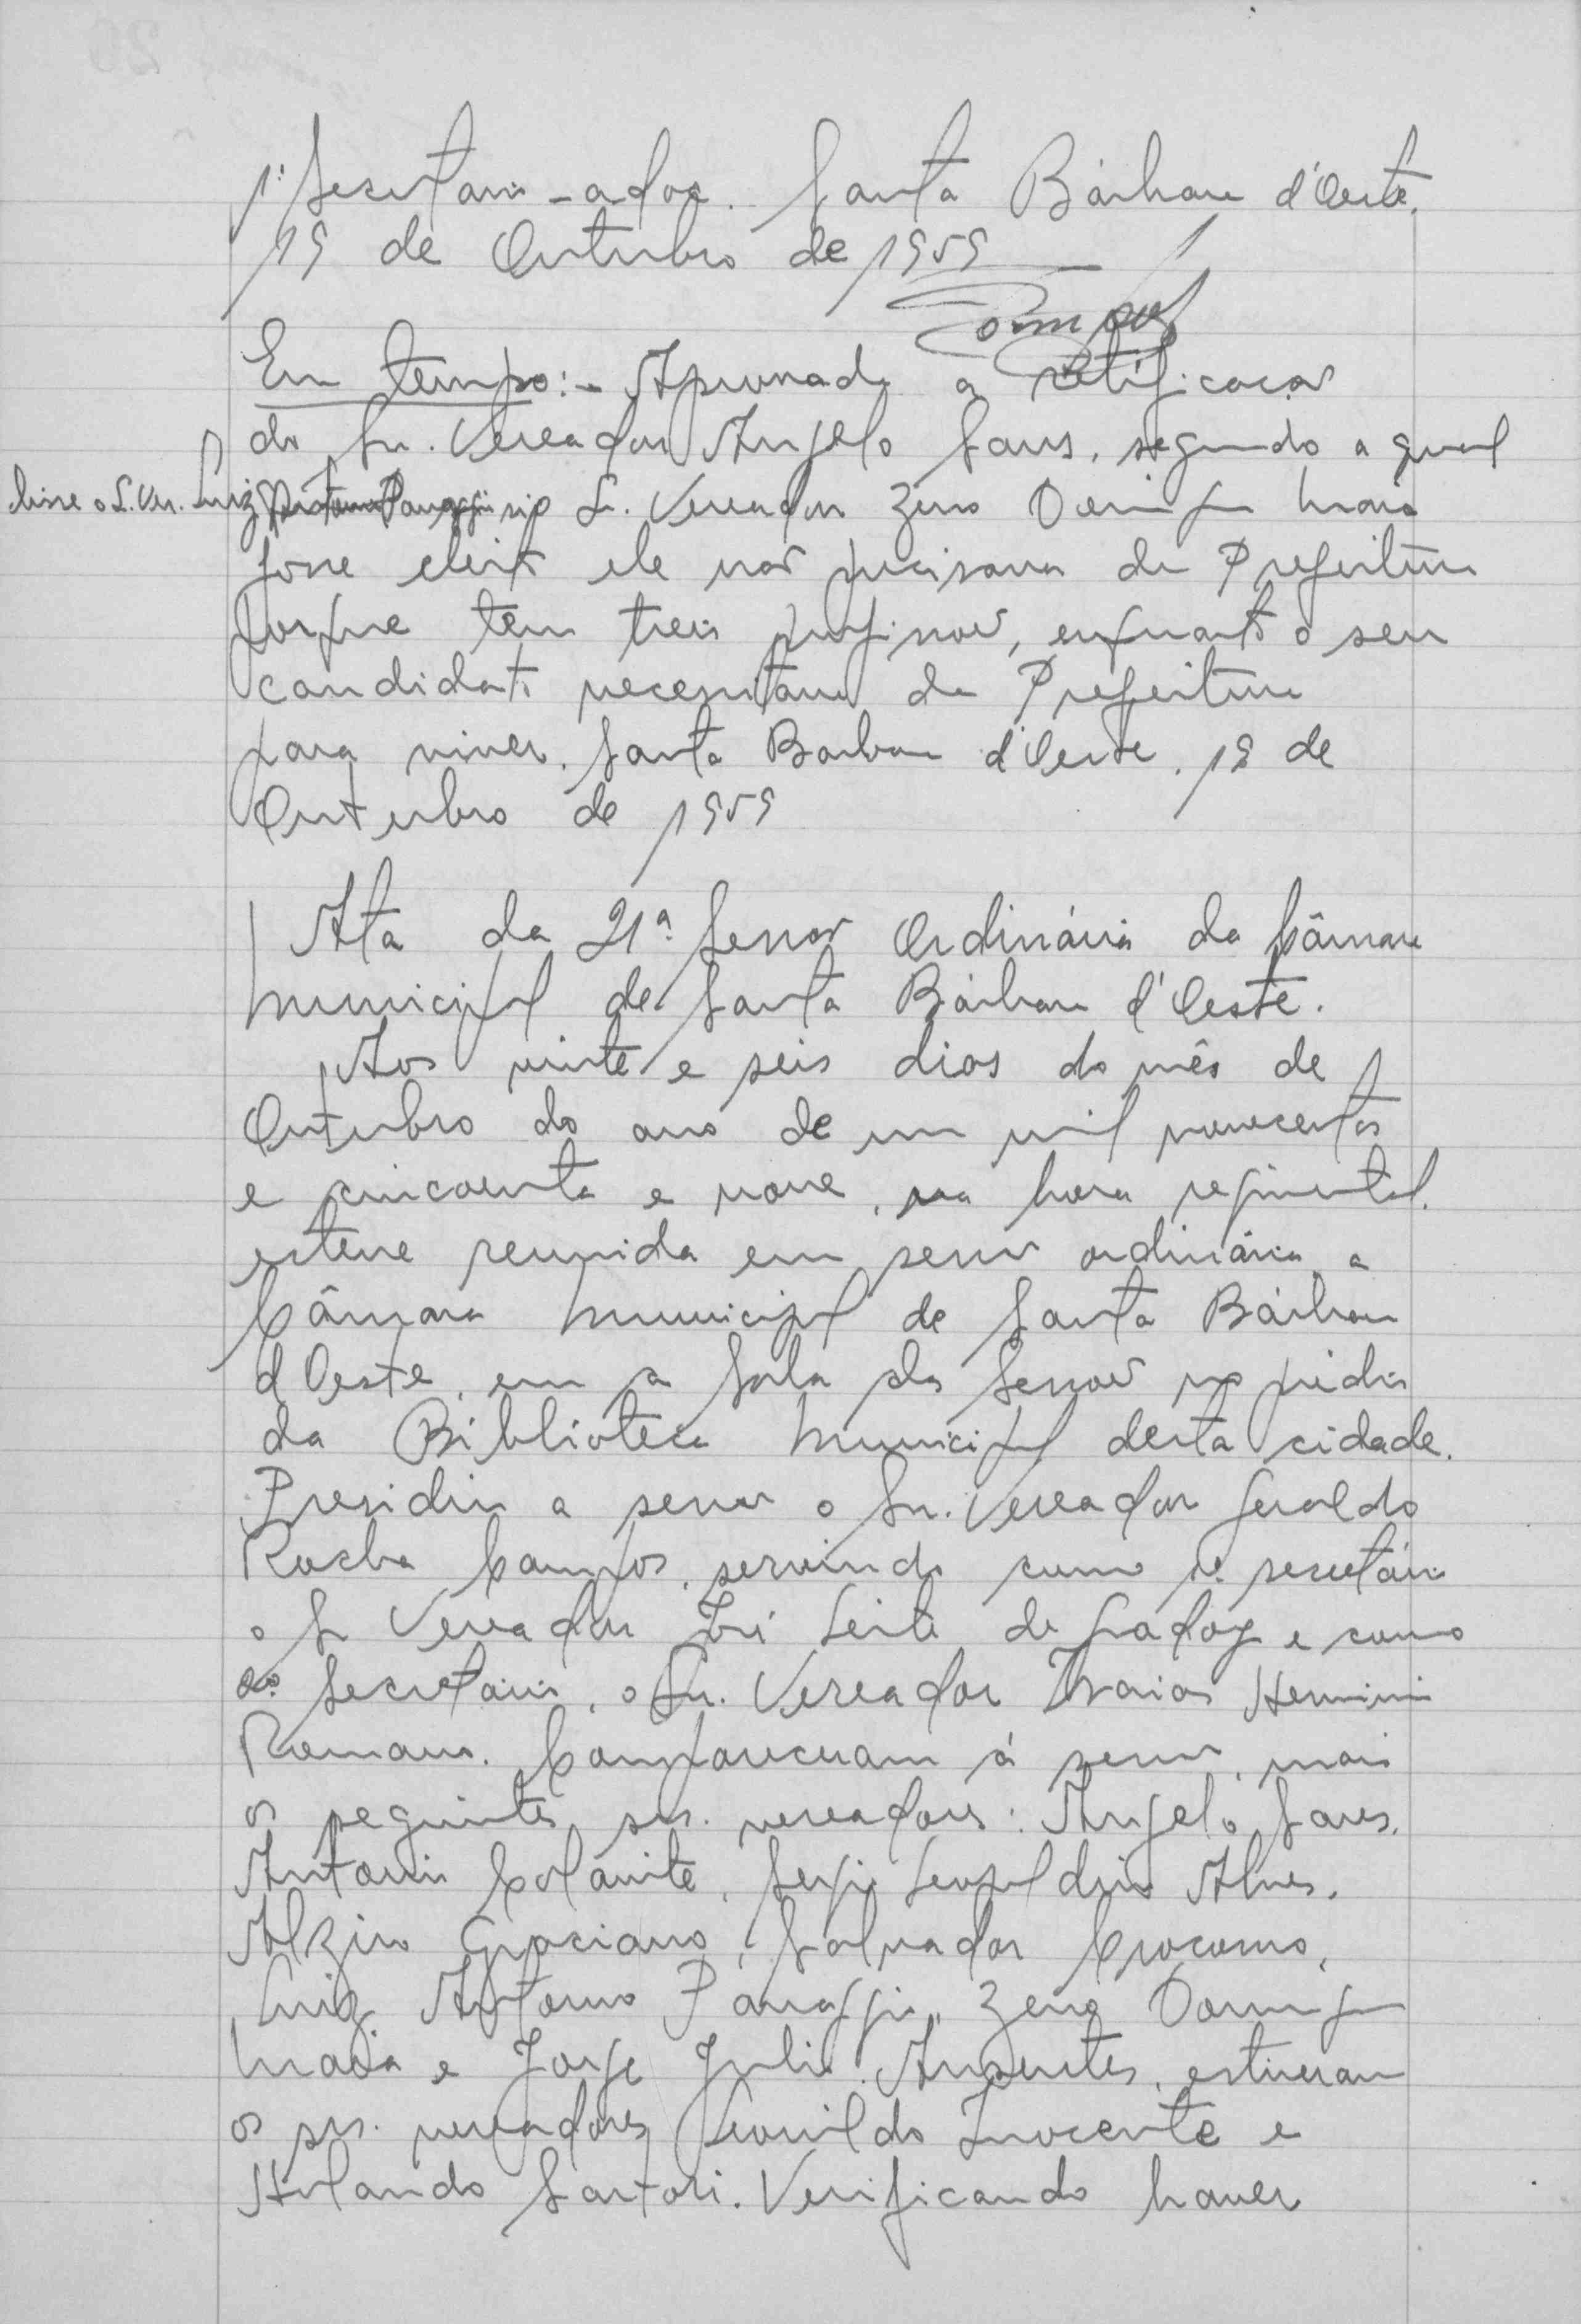 1º Secretario - ad hoc. Santa Bárbara d'Oeste,
19 de Outubro de 1959
Em tempo:- Aprovada a retificação
do Sr. Vereador Angelo Sans, segundo a qual
disse o S. Ver. Luiz Antonio Panaggio S. Vereador Zeno Domingu Maia
fosse eleito ele não precisava da Prefeitura
porque tem treis profissões, enquanto o seu
candidato necessitava da Prefeitura
para viver. Santa Barbara d'Oeste, 19 de
Outubro de 1959
Ata da 21ª Sessão Ordinária da Câmara
Municipal de Santa Bárbara d'Oeste.
Aos vinte e seis dias do mês de
Outubro do ano de um mil novecentos
e cincoenta e nove, na hora regimental,
esteve reunida em sessão ordinária a
Câmara Municipal de Santa Bárbara
d'Oeste, em a Sala das Sessões no prédio
da Biblioteca Municipal desta cidade.
Presidiu a sessão o Sr. Vereador Geraldo
Rocha Campos, servindo como 1º secretário
o Sr Vereador José Leite de Godoy e como
2º Secretario, o Sr. Vereador Izaias Herminio
Romano. Compareceram à sessão, mais
os seguintes srs. vereadores: Angelo Sans,
Antonio Colánite, Sergio Leopoldino Alves,
Alziro Graciano, Salvador Crócomo,
Luiz Antonio Panaggio, Zeno Domingu
Maia e Jorge Julio. Ausentes, estiveram
os srs. vereadores Leonildo Inocente e
Holando Sartori. Verificando haver